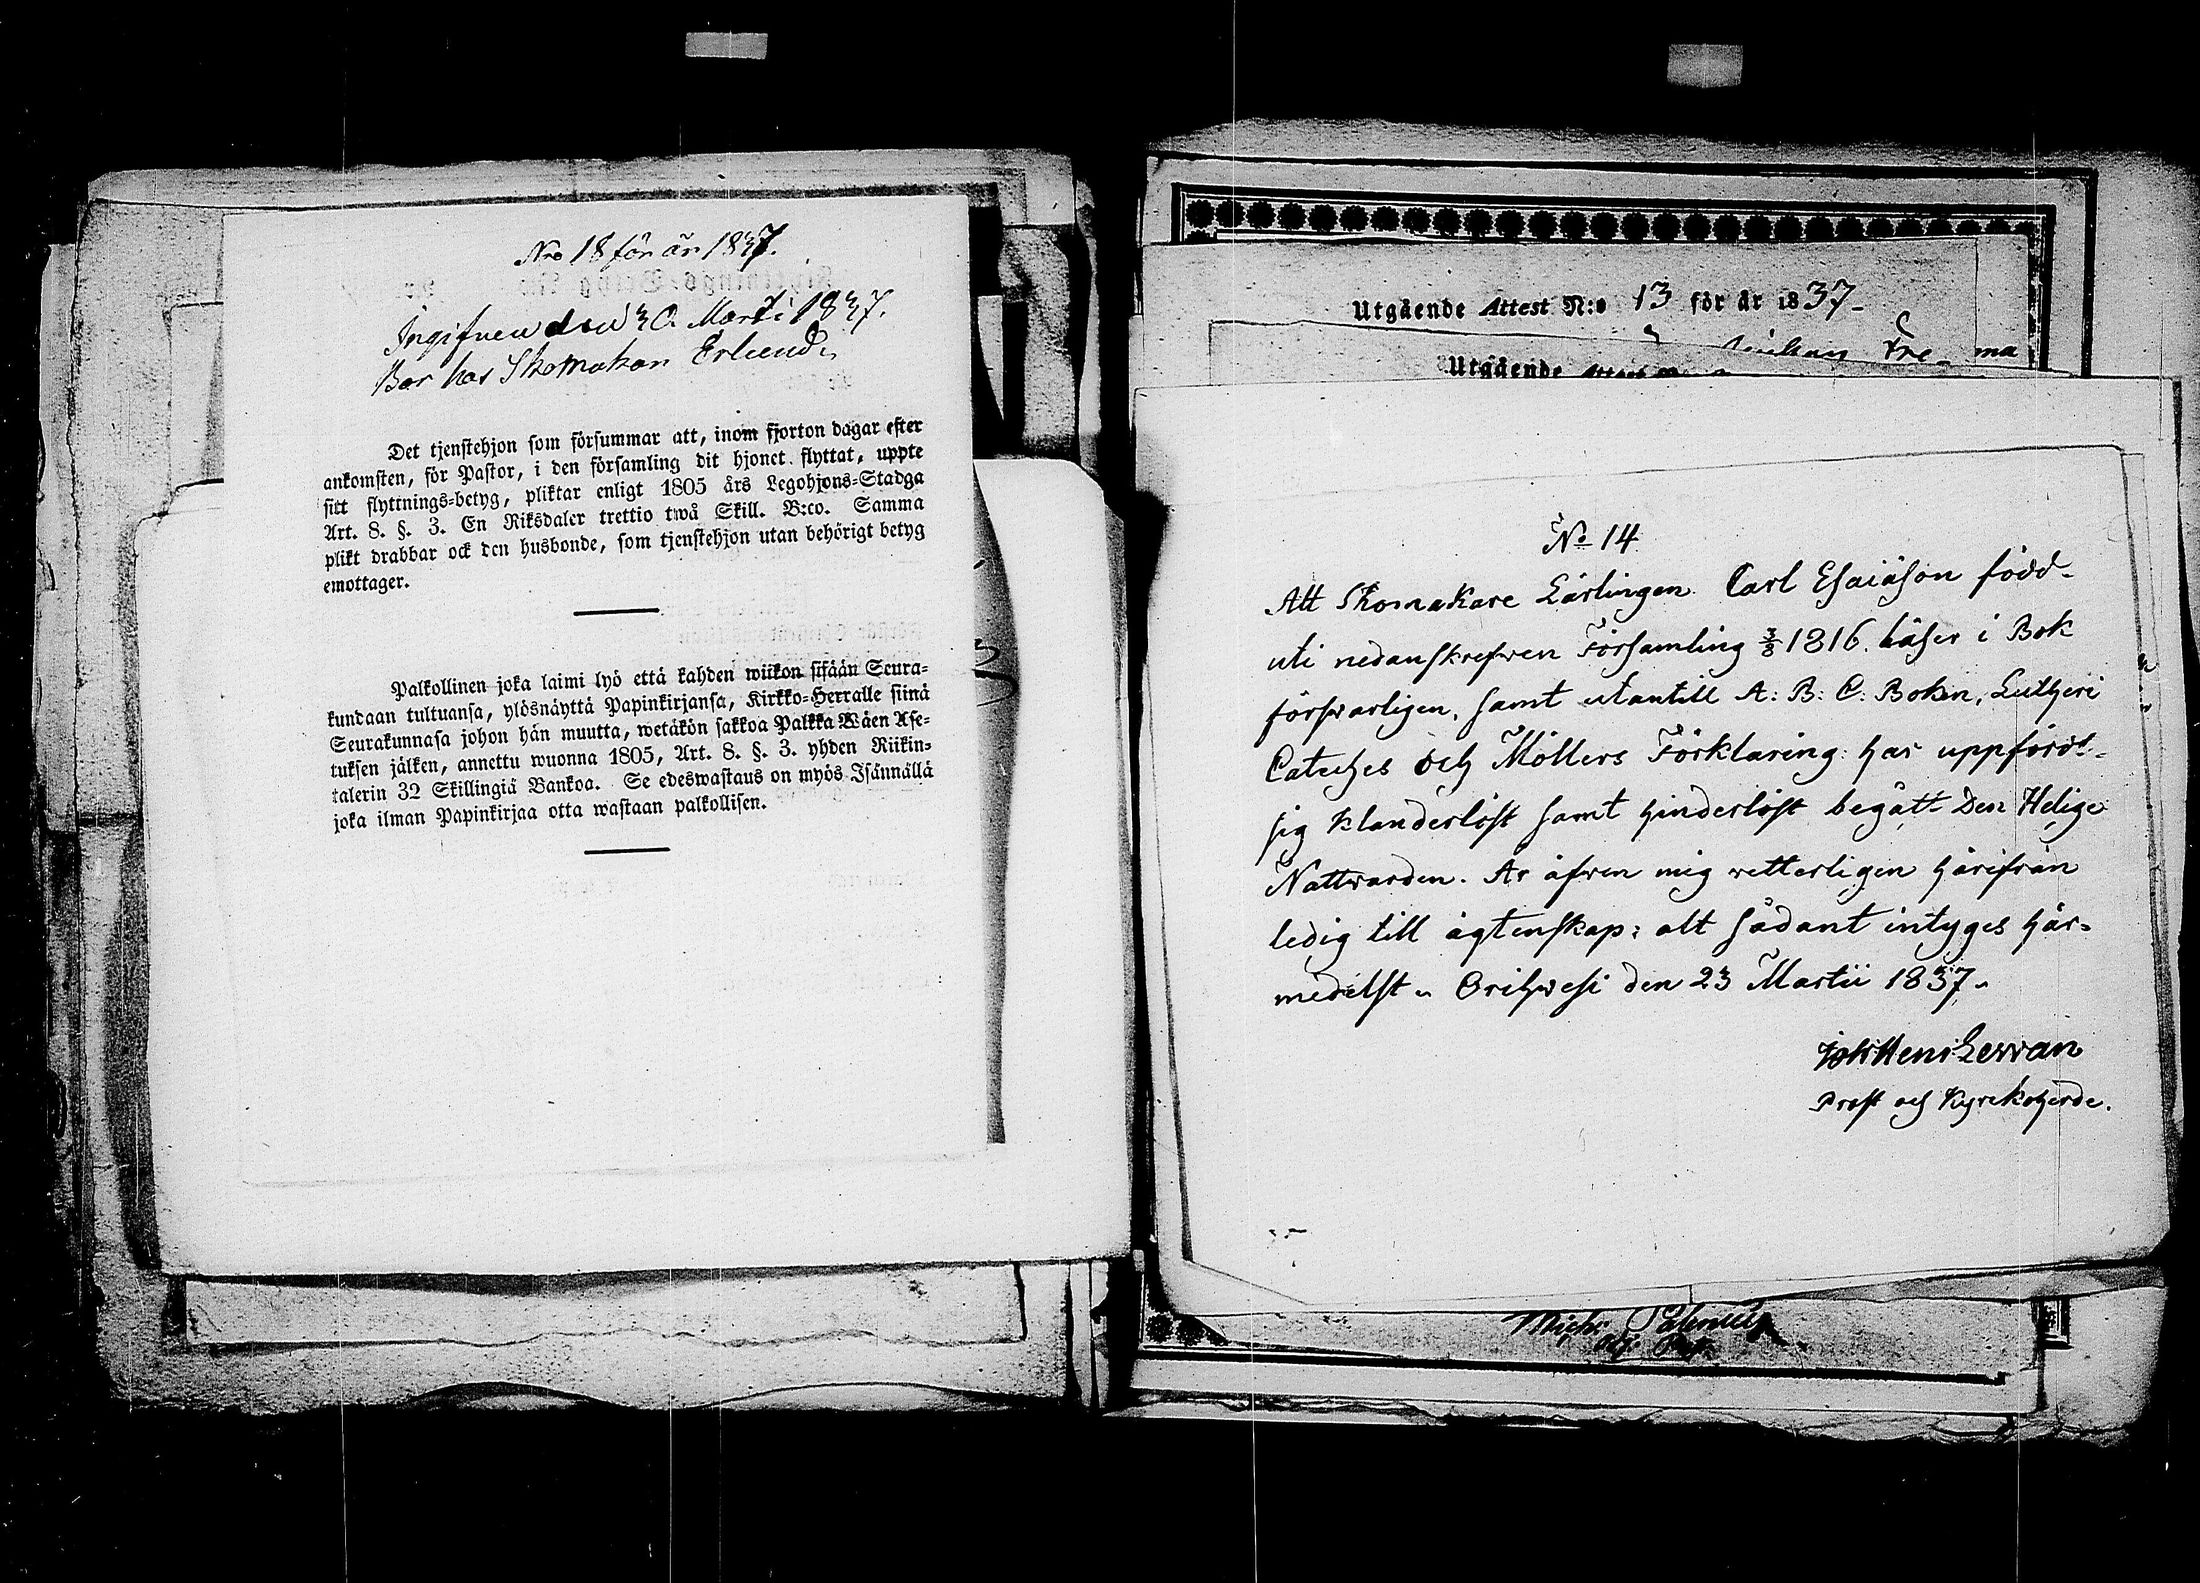 Nro 18 för år 1837.
Ingifven den 30. Marti 1837.
Bor hos Skomakar Erlund.
Det tjenstehjon som försummar att, inom fjorton dagar efter
ankomsten, för Pastor, i den församling dit hjonet flyttat, uppte
sitt flyttnings-betyg, pliktar enligt 1805 års Legohjons-Stadga
Art. 8. §. 3. En Riksdaler trettio twå Skill. B:co. Samma
plikt drabbar ock den husbonde, som tjenstehjon utan behörigt betyg
emottager.
Palkollinen joka laimi lyö että kahden wiikon sisään Seura-
kundaan tultuansa, ylösnäyttä Papinkirjansa, Kirkko-Herralle siinä
Seurakunnasa johon hän muutta, wetäkön sakkoa Palkka Wäen Ase-
tuksen jälken, annettu wuonna 1805, Art. 8. §. 3. yhden Riikin-
talerin 32 Skillingiä Bankoa. Se edeswastaus on myös Isännällä
joka ilman Papinkirjaa otta wastaan palkollisen.
Utgående Attest N:o 13 för år 1837-
Utgående
No 14
Att Skomakare Lärlingen Carl Esaiäson född-
uti nedanskrefwen Församling 3/8 1816. läser i Bok
förswarligen, samt utantill A: B: C: Boken, Lutheri
Cateches och Möllers Förklaring: har uppfördt-
sig klanderlöst samt hinderlöst begått Den Helige
Nattwarden. Är äfwen mig vetterligen härifrån
ledig till ägtenskap; alt sådant intyges här-
medelst. Orihwesi den 23 Martii 1837.
Joh Henr Lewan
Prost och Kyrckoherde.